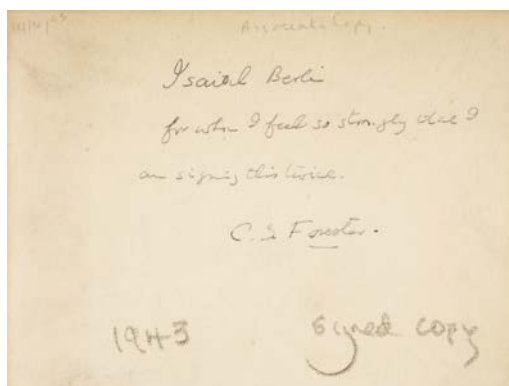 Associated Copy.
Isaiah Berlin
for whom I feel so strongly that I
am signing this twice.
C. S. Forester.
1943 signed copy